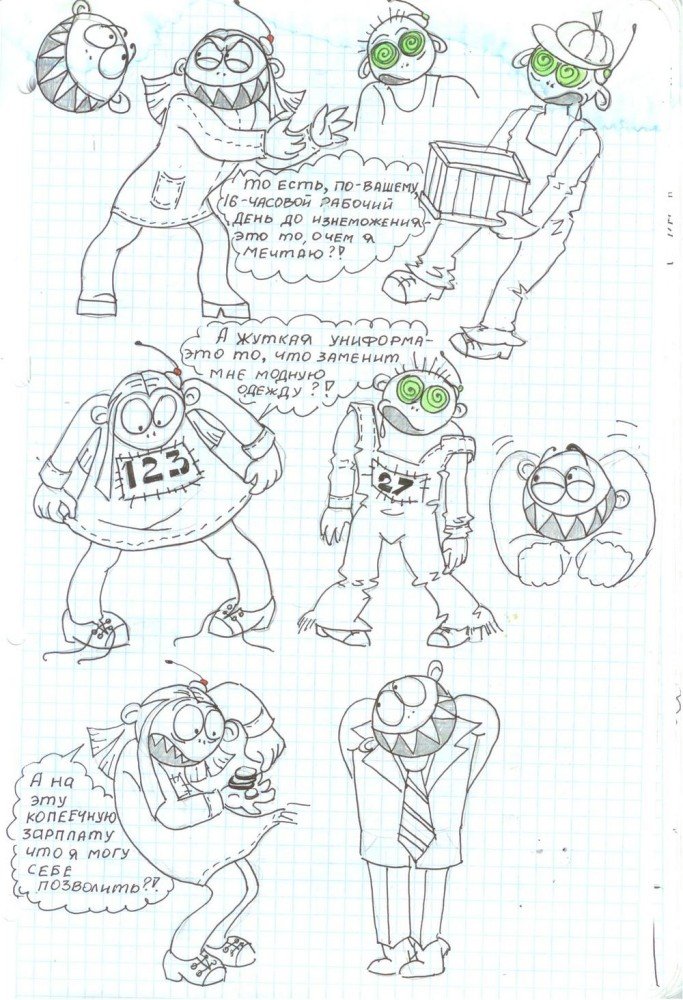 ТО ЕСТЬ, ПО-ВАШЕМУ,
16-ЧАСОВОЙ РАБОЧИЙ
ДЕНЬ ДО ИЗНЕМОЖЕНИЯ-
ЭТО ТО, О ЧЕМ Я
МЕЧТАЮ?!
А ЖУТКАЯ УНИФОРМА-
ЭТО ТО, ЧТО ЗАМЕНИТ
МНЕ МОДНУЮ
ОДЕЖДУ?!
123
27
А НА
ЭТУ
КОПЕЕЧНУЮ
ЗАРПЛАТУ
ЧТО Я МОГУ
СЕБЕ
ПОЗВОЛИТЬ?!